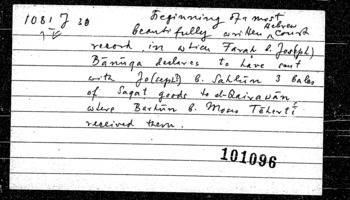 1081 J 30
Beginning of a most
beautifully written Hebrew Court
record in which Farah b. Jos(eph)
Bānūqa declares to have sent
with Jo(seph) b. Sahlūn 3 bales
of Saqat goods to al-Qairawān,
where Barhūn b. Moses Tāhertī
received them.
101096